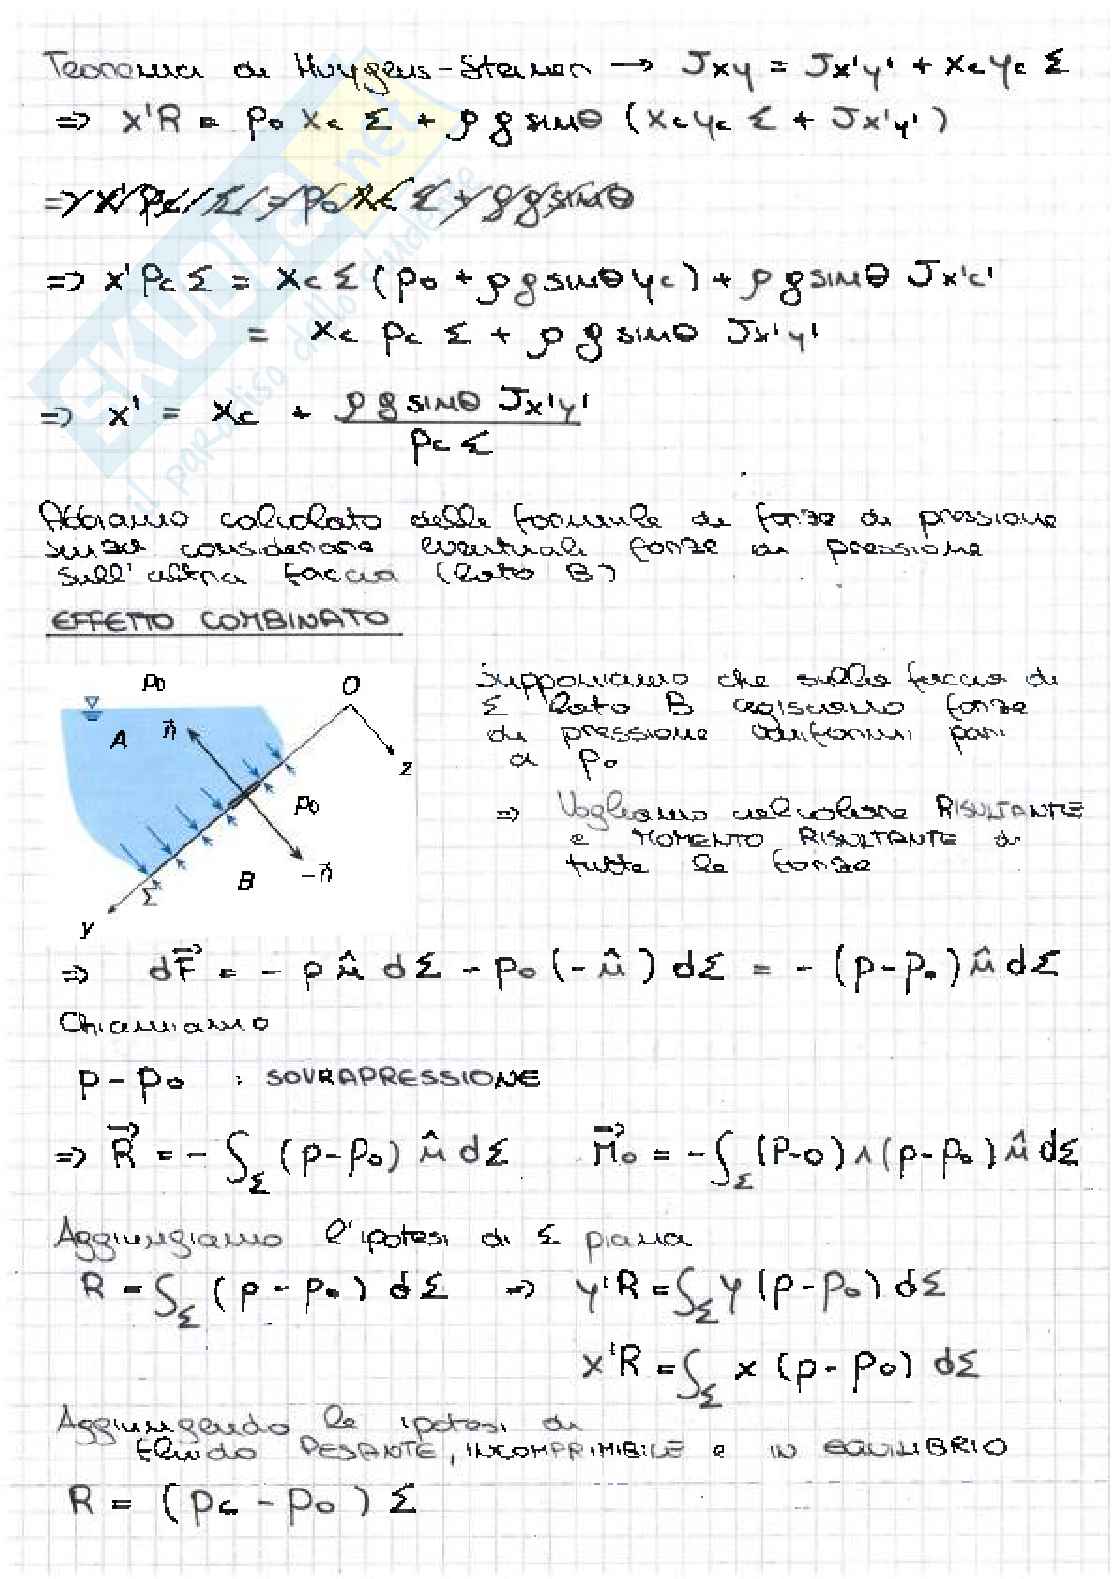 Teorema di Huygens-Steiner → Jxy = Jx'y' + xc yc Σ
⇒ x'R = p0 xc Σ + ρ g sinθ (xc yc Σ + Jx'y')
⇒ x' pc Σ = p0 xc Σ + ρ g sinθ
⇒ x' pc Σ = xc Σ (p0 + ρ g sinθ yc) + ρ g sinθ Jx'c'
= xc pc Σ + ρ g sinθ Jx'y'
⇒ x' = xc + ρ g sinθ Jx'y'
pc Σ
Abbiamo calcolato delle formule di forze di pressione
senza considerare eventuali forze di pressione
sull'altra faccia (lato B)
EFFETTO COMBINATO
p0 O
A n⃗
z
p0
B -n⃗
Σ
y
Supponiamo che sulla faccia di
Σ lato B agiscano forze
di pressione uniformi pari
a p0
⇒ Vogliamo calcolare RISULTANTE
e MOMENTO RISULTANTE di
tutte le forze
⇒ dF⃗ = - p n̂ dΣ - p0 (-n̂) dΣ = - (p-p0) n̂ dΣ
Chiamiamo
p - p0 : SOVRAPRESSIONE
⇒ R⃗ = - ∫Σ (p-p0) n̂ dΣ M⃗o = - ∫Σ (P-O) ∧ (p-p0) n̂ dΣ
Aggiungiamo l'ipotesi di Σ piana
R = ∫Σ (p - p0) dΣ ⇒ y'R = ∫Σ y (p-p0) dΣ
x'R = ∫Σ x (p-p0) dΣ
Aggiungendo le ipotesi di
fluido PESANTE, INCOMPRIMIBILE e IN EQUILIBRIO
R = (pc - p0) Σ
SKUOLA.net
il paradiso dello studente